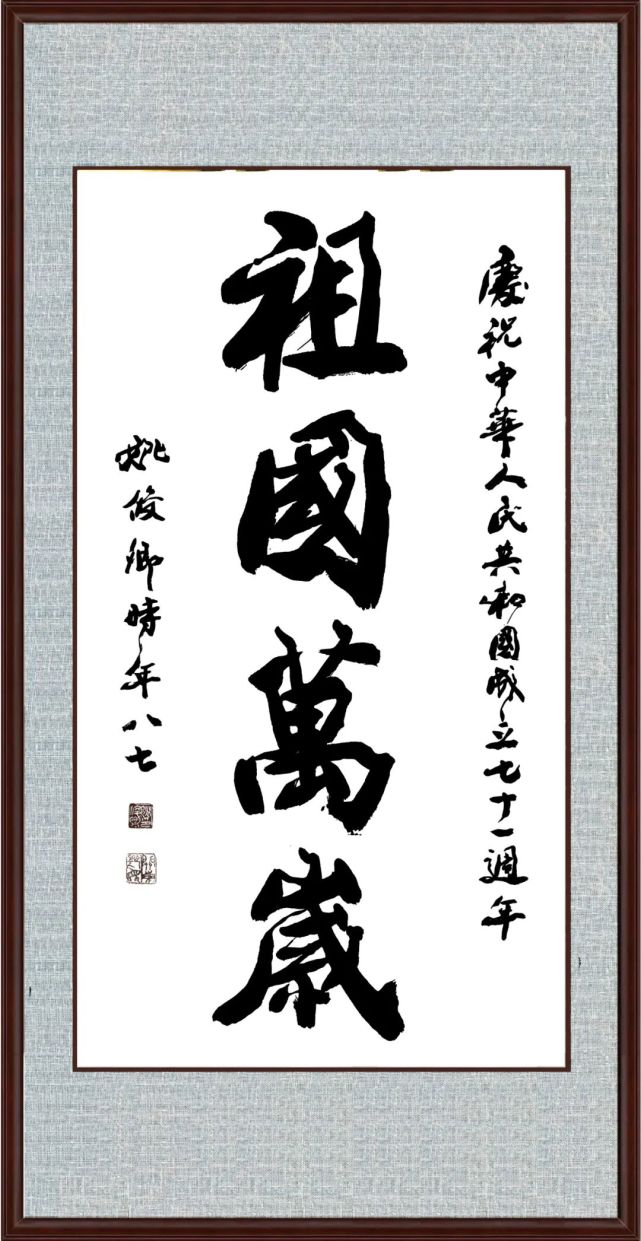 慶祝中華人民共和國成立七十一週年
祖國萬歲
姚俊卿時年八七